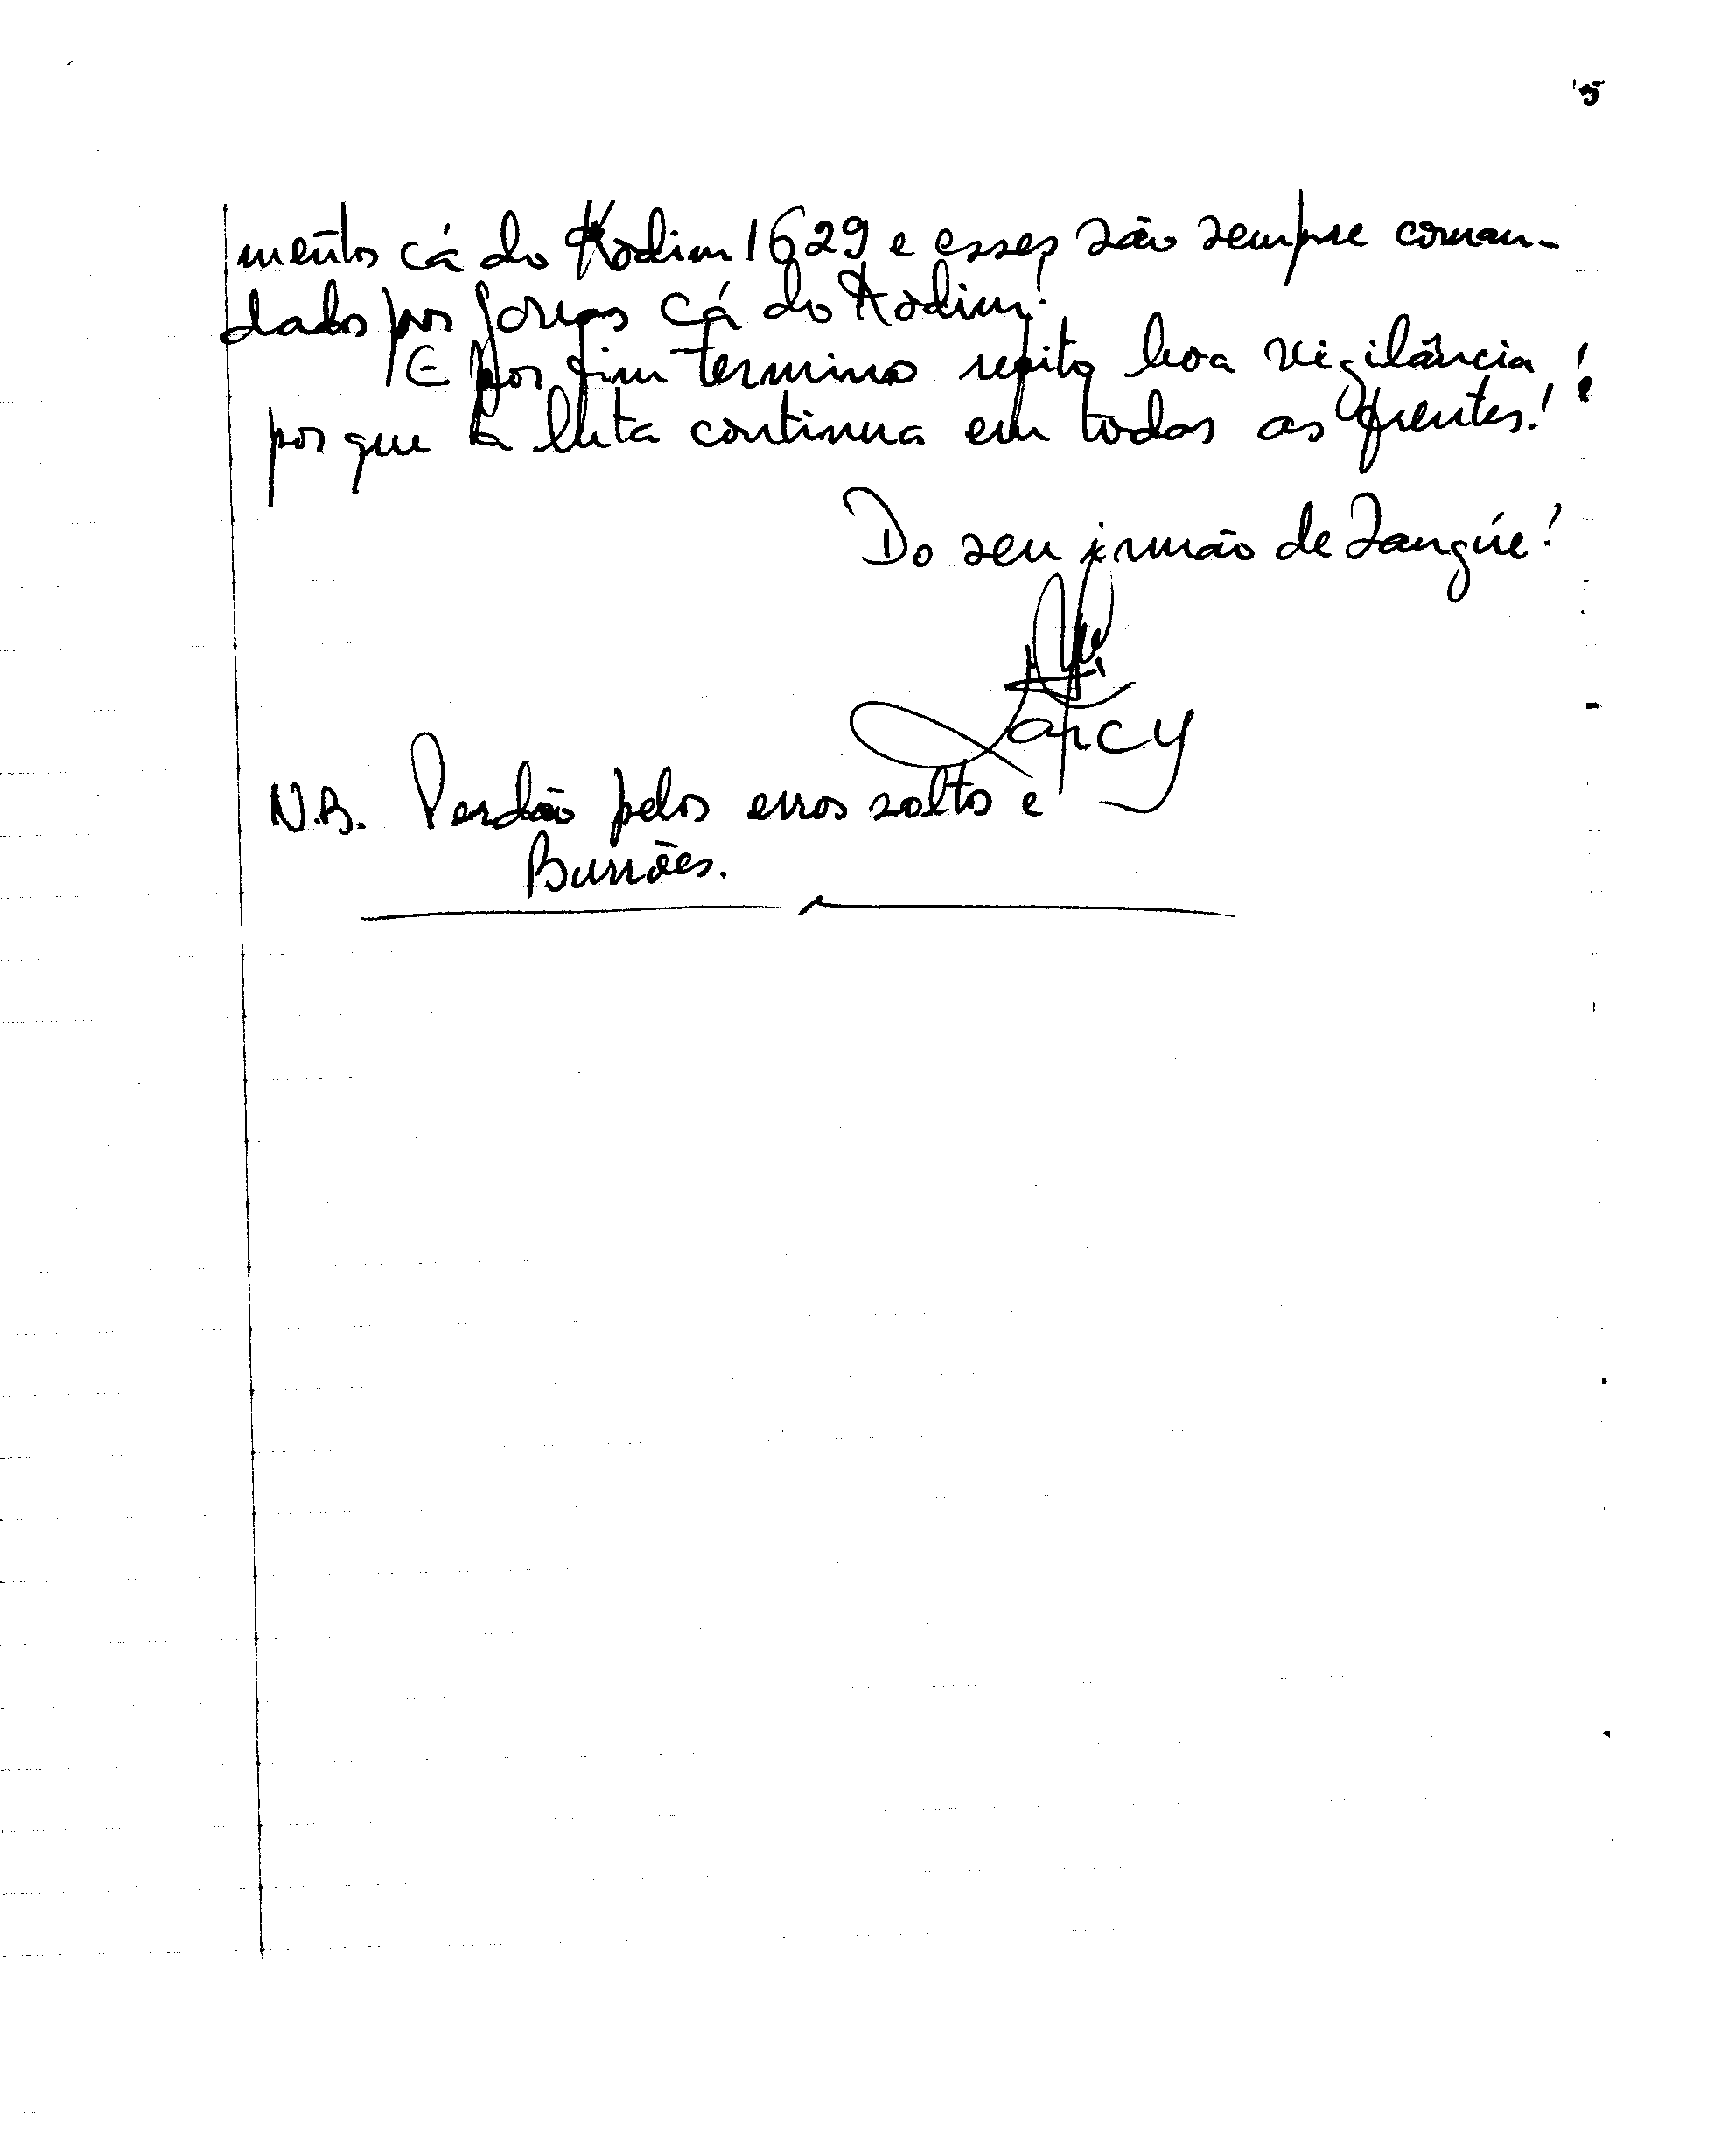 5
mentos cá do Kodim 1629 e esses são sempre coman-
dados por forças cá do Kodim!
E por fim termino repito boa vigilância!
porque a luta continua em todas as frentes!
Do seu irmão de Sangúe!
N.B. Perdão pelos erros salto e
Burrões.